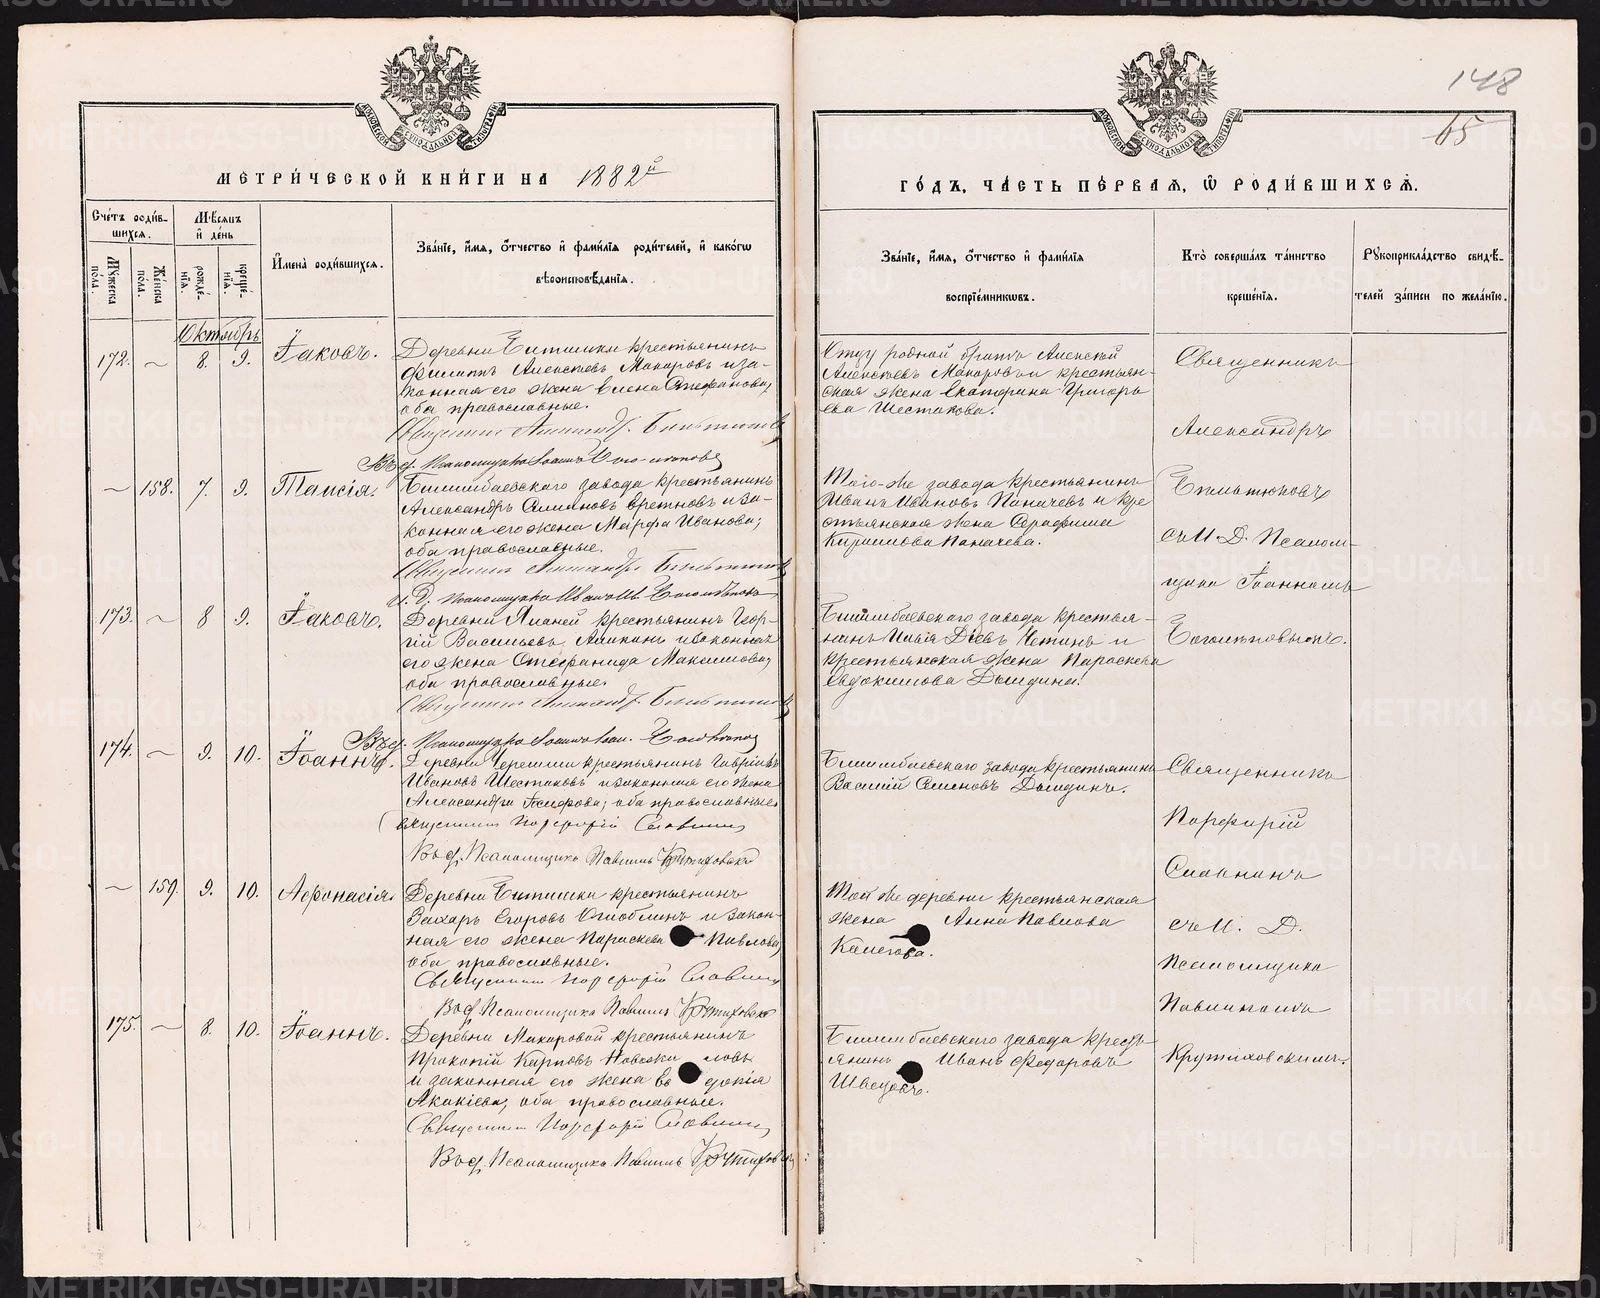 148
65
МЕТРИЧЕСКОЙ КНИГИ НА 1882й
ГОДЪ, ЧАСТЬ ПЕРВАЯ, Ѡ РОДИВШИХСЯ.
Счетъ родив-
шихся.
Мѣсяцъ
и день
Мужеска
пола.
Женска
пола.
рожде-
нія.
креще-
нія.
Имена родившихся.
Званіе, имя, отчество и фамилія родителей, и какогѡ
вѣроисповѣданія.
Званіе, имя, отчество и фамилія
воспріемниковъ.
Кто совершалъ таинство
крещенія.
Рукоприкладство свидѣ-
телей записи по желанію.
Октябрь
172. — 8. 9. Іаковъ.
Деревни Битимки крестьянинъ
Филиппъ Алексѣевъ Макаровъ и за-
конная его жена Елена Стефанова,
оба православные.
Священникъ Александръ
Отцу родной братъ Алексѣй
Алексѣевъ Макаровъ и крестьян-
ская жена Екатерина Григорь
ева Шестакова.
Священникъ
Александръ
— 158. 7. 9. Таисія.
Билимбаевскаго завода крестьянинъ
Александръ
конная его жена Марфа Иванова;
оба православные.
Священникъ Александръ
Того-же завода крестьянинъ
Иванъ Ивановъ Паначевъ и кре
стьянская жена Серафима
Кириллова Паначева.
съ И. Д. Псалом-
щика Іоанномъ
173. — 8 9. Іаковъ.
крестьянинъ Геор-
гій Васильевъ и законная
его жена Стефанида Максимова,
оба православные.
Священникъ Александръ
Билимбаевскаго завода крестья-
нинъ
крестьянская жена Параскева
Евдокимова Дылдина.
174. — 9. 10. Іоаннъ.
Деревни Черемши крестьянинъ Гавріилъ
Ивановъ Шестаковъ и законная его жена
Александра оба православные.
Священникъ Порфирій Славнинъ
Псаломщика Павлинъ Крутиховскій
Билимбаевскаго завода крестьянинъ
Василій Семеновъ Дылдинъ.
Священникъ
Порфирій
Славнинъ
— 159. 9. 10. Аѳонасія.
Деревни Битимки крестьянинъ
Захаръ Егоровъ Оглоблинъ и закон-
ная его жена Параскева Павлова,
оба православные.
Священникъ Порфирій Славнинъ
Псаломщика Павлинъ Крутиховскій
Той же деревни крестьянская
жена Анна Павлова
Калегова.
съ И. Д.
Псаломщика
Павлиномъ
175. — 8. 10. Іоаннъ.
Деревни Макаровой крестьянинъ
Прокопій Карповъ
и законная его жена
Акакіева, оба православные.
Священникъ Порфирій Славнинъ
Псаломщика Павлинъ Крутиховскій
Билимбаевскаго завода кресть-
янинъ Иванъ Федоровъ
Шведовъ.
Крутиховскимъ.